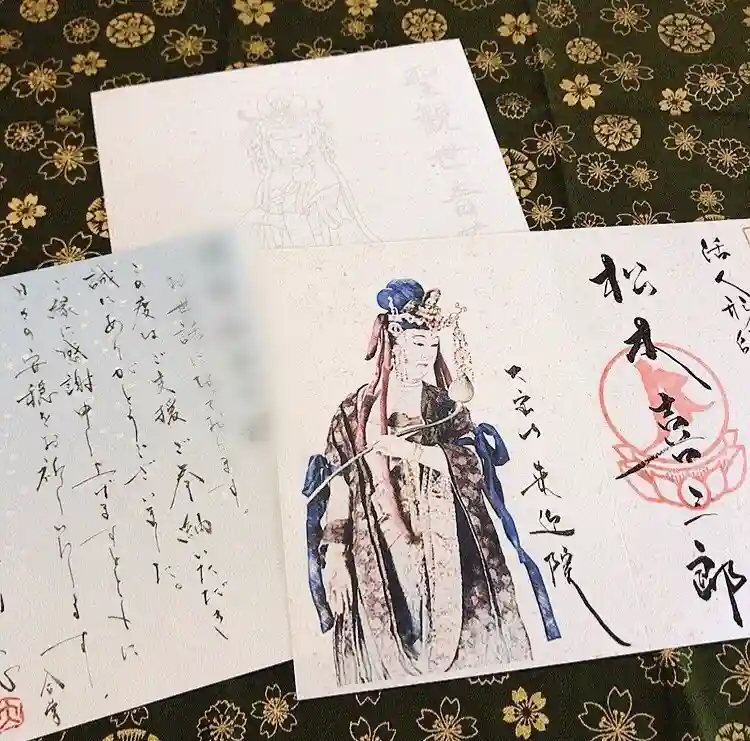 聖觀世音
活人形師
松本喜三郎
大宝山 来迎院
お世話になっております。
この度はご支援ご奉納いただき
誠にありがとうございました。
ご縁に感謝申し上げますとともに、
日々の安穏をお祈りいたします 合掌